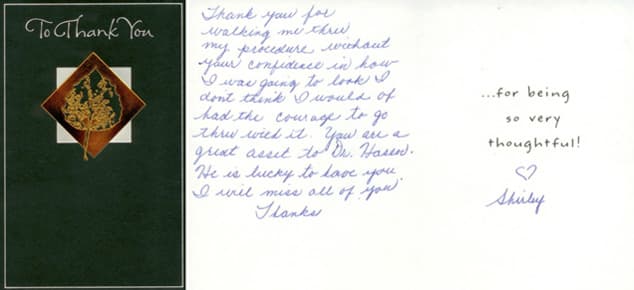 To Thank You
Thank you for
walking me thru
my procedure without
your confidence in how
I was going to look I
dont think I would of
had the courage to go
thru with it. You are a
great asset to Dr. Hassen.
He is lucky to have you.
I will miss all of you
Thanks
...for being
so very
thoughtful!
Shirley